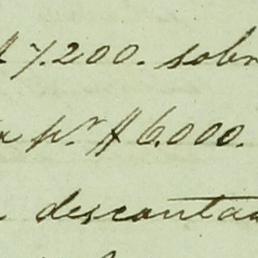 $ 7.200. sobr
a pr. $ 6.000.
descontad